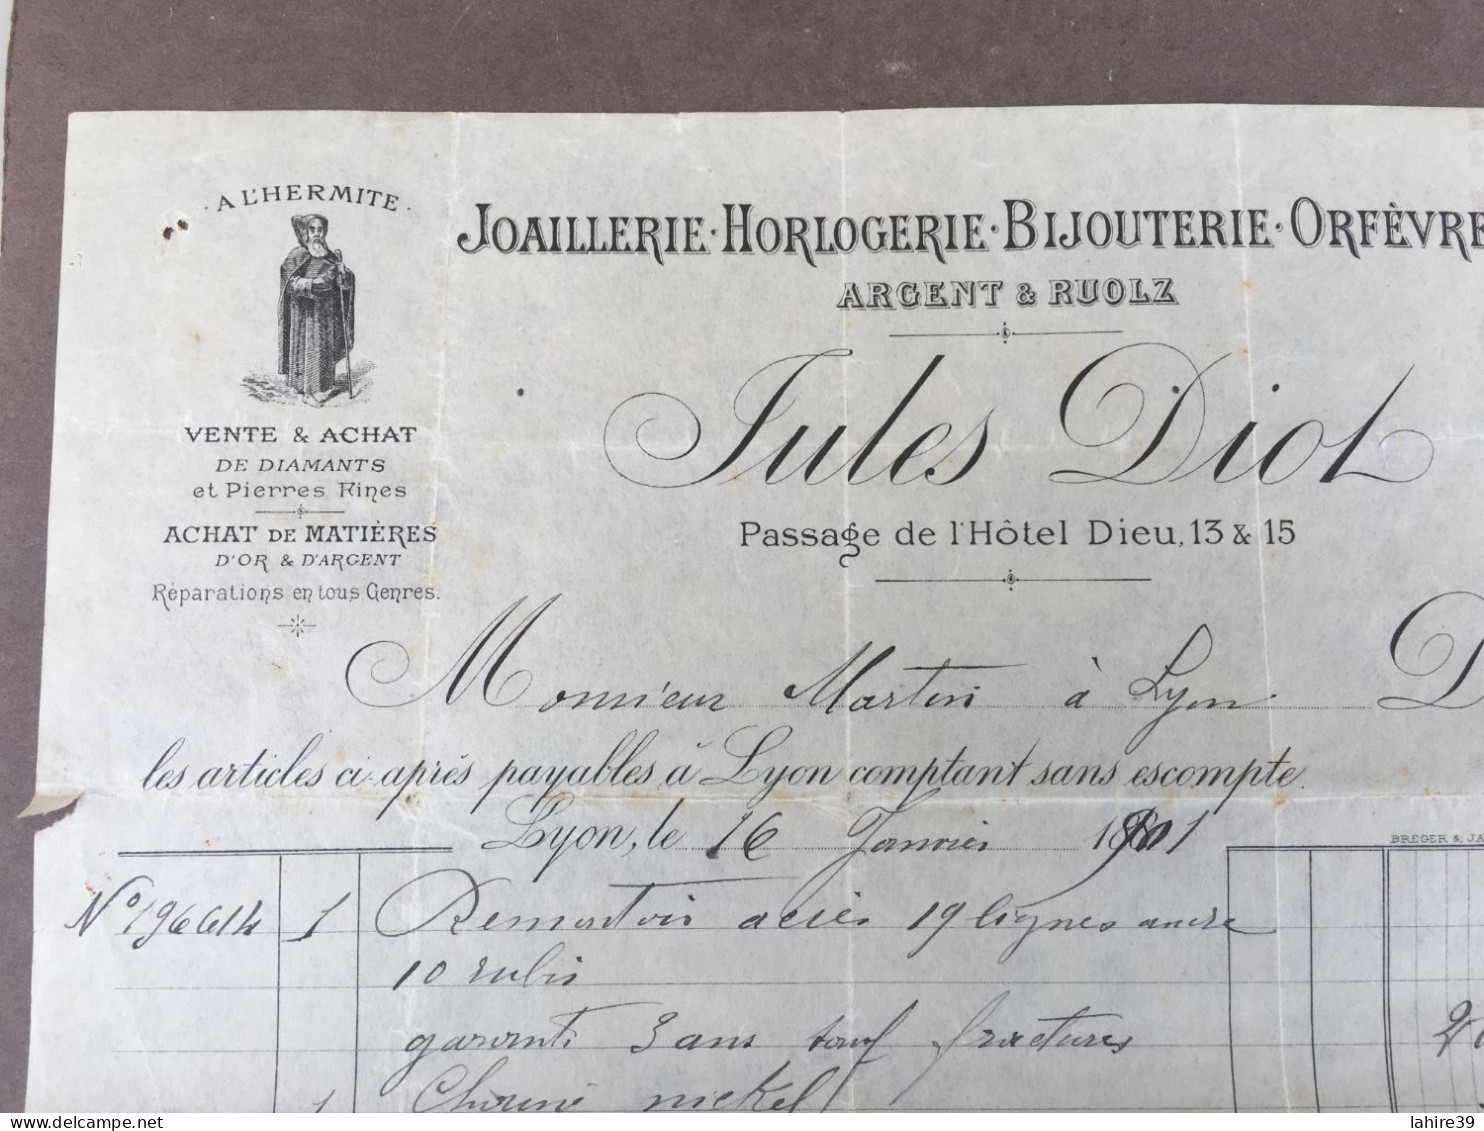 A L'HERMITE
JOAILLERIE · HORLOGERIE · BIJOUTERIE · ORFÈVRE
ARGENT & RUOLZ
Jules Diot
Passage de l'Hôtel Dieu, 13 & 15
VENTE & ACHAT
DE DIAMANTS
et Pierres Fines
ACHAT DE MATIÈRES
D'OR & D'ARGENT
Réparations en tous Genres.
Monsieur Martin à Lyon D
les articles ci-après payables à Lyon comptant sans escompte.
Lyon, le 16 Janvier 1901
BREGER & JA
N° 196614 1 Remontoir acier 19 lignes ancre
10 rubis
garanti 3 ans sauf fractures
1 Chaine nickel
delcampe.net
lahire39